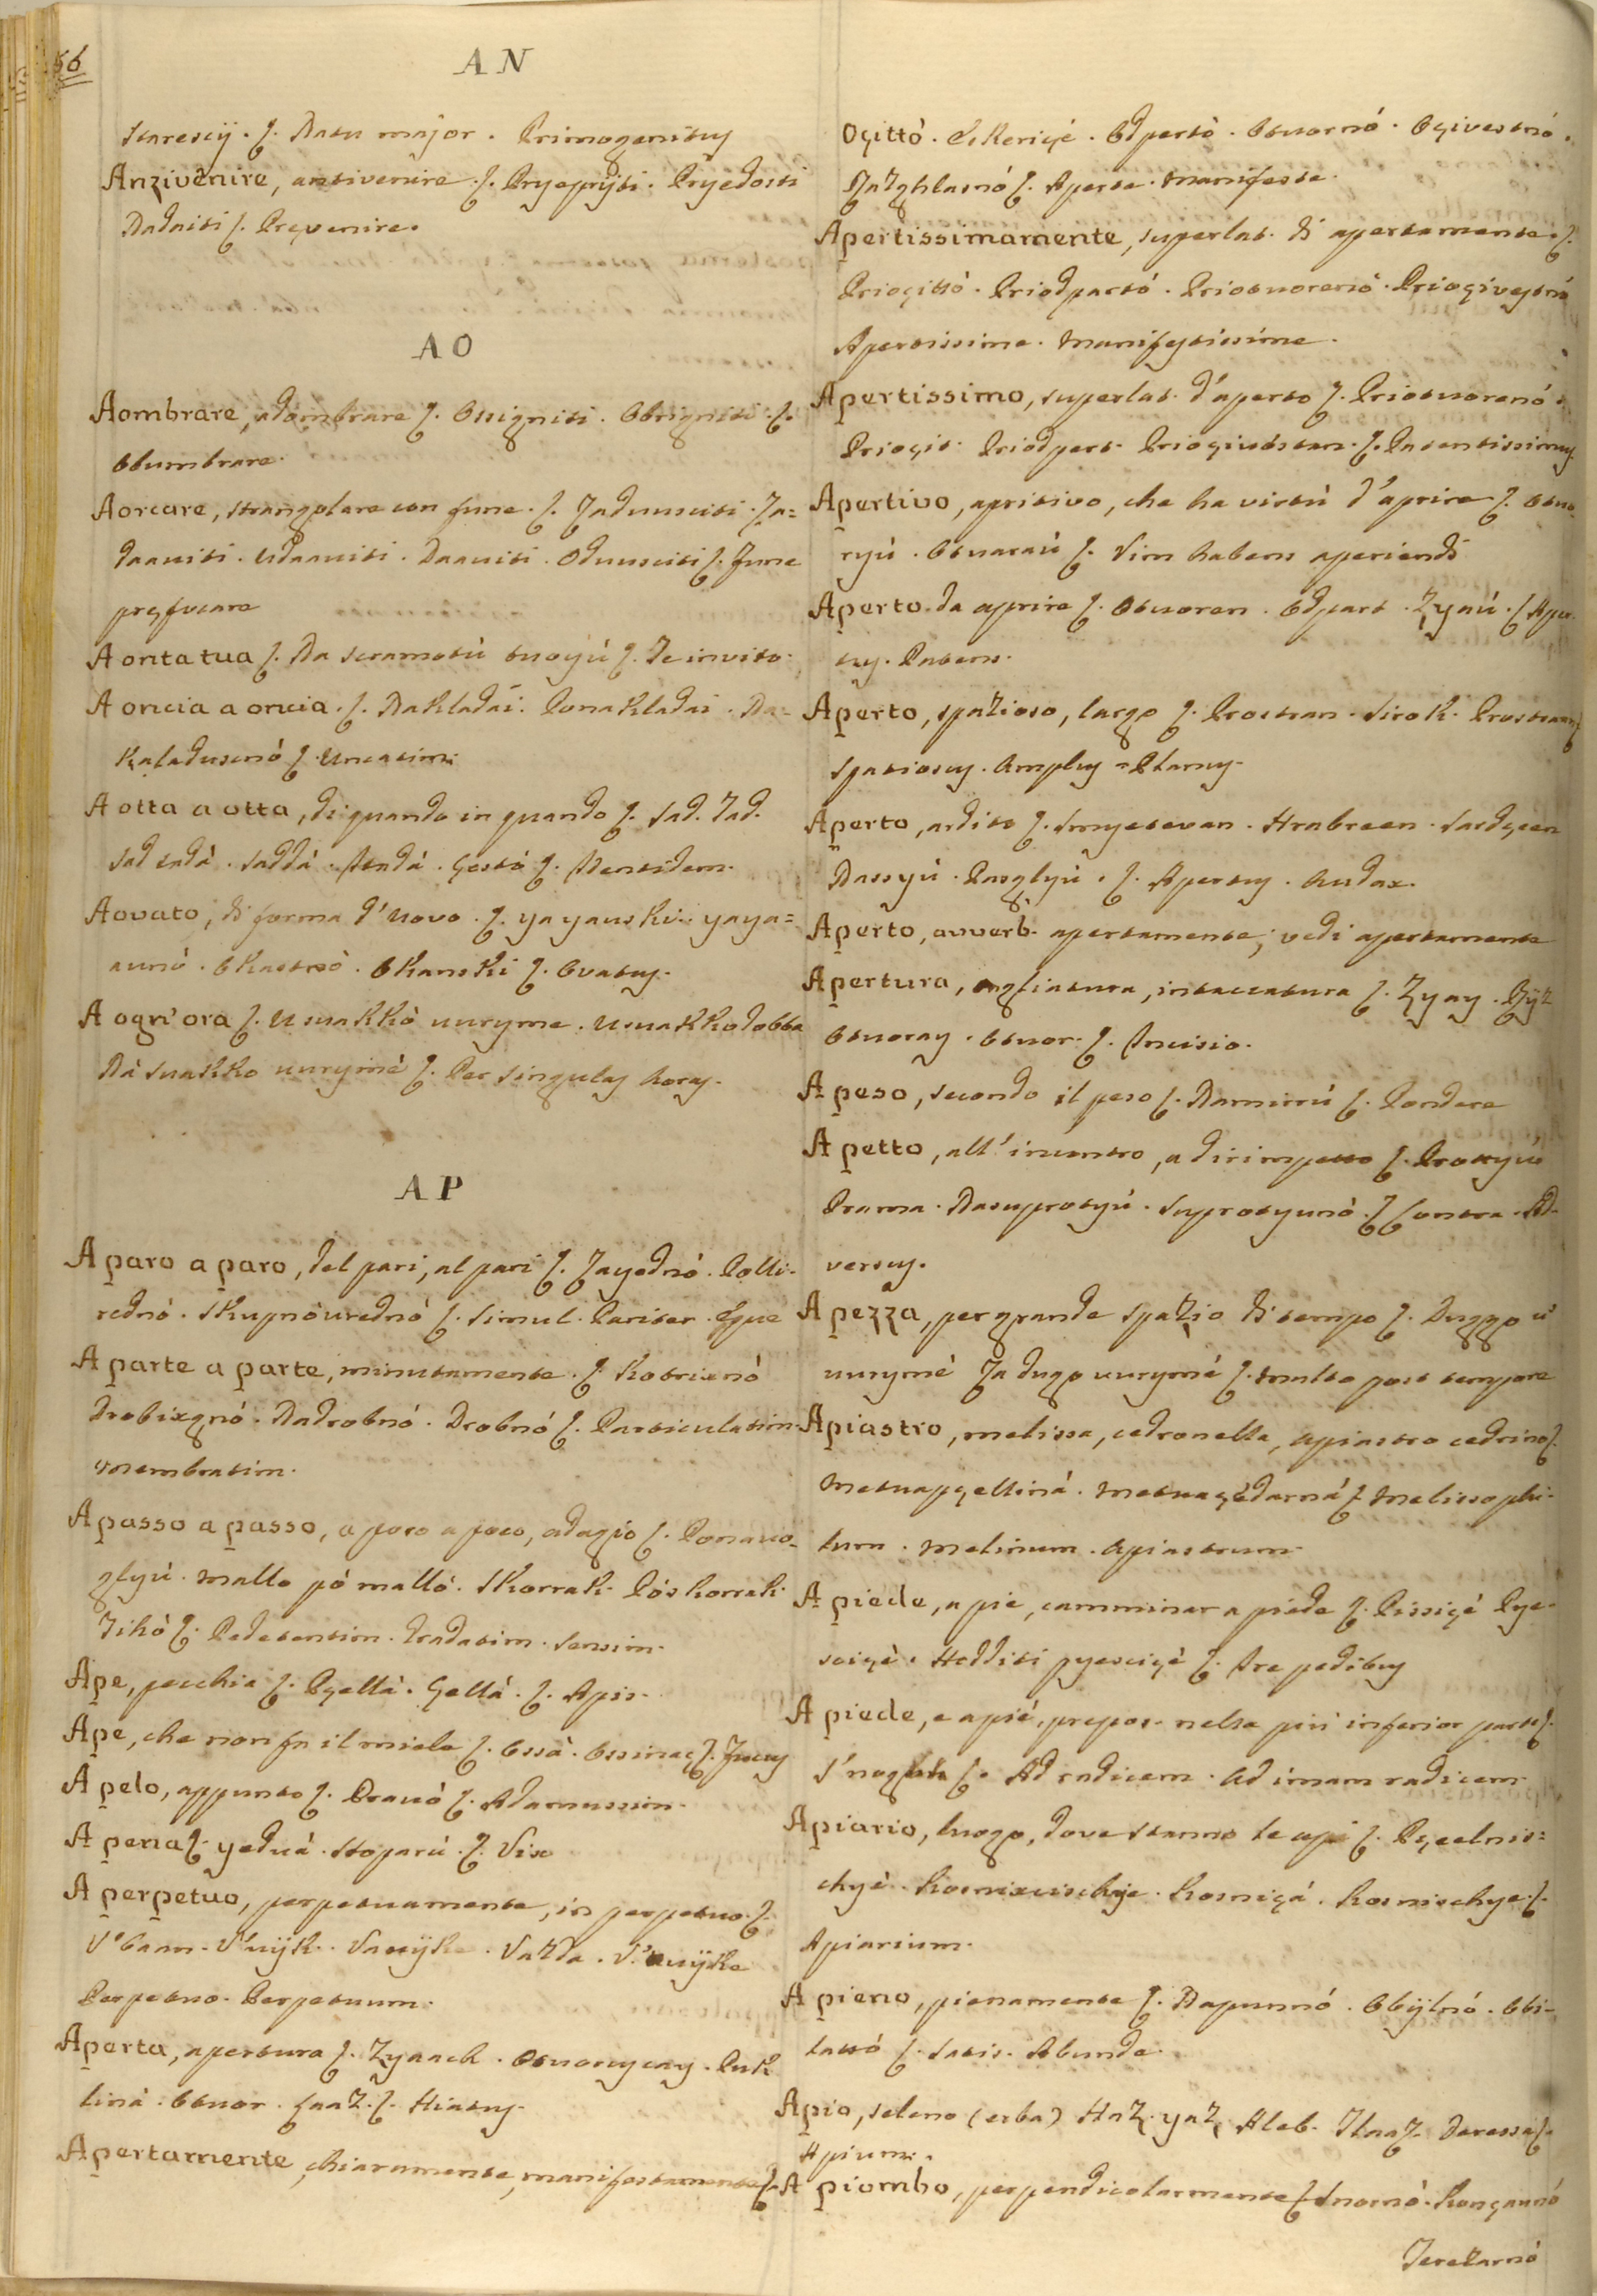 56
AN
Starescij. ʃ. Natu major. Primogenitus
Anzivenire, antivenire. ʃ. Pryeprÿti. Pryedosti
Nadaiti ʃ. Prevenire.
AO
Aombrare, adombrare ʃ. Ossigniti. Obsigniti. ʃ.
Obumbrare.
Aorcare, strangolare con fune. ʃ. Zaduusciti. Za=
daaviti. Udaaviti. Daaviti. Oduusciti ʃ. Fune
prefocare
A onta tua ʃ. Na scramotù tvoyù ʃ. Te invito.
A oncia a oncia. ʃ. Nakladai. Ponakladai. Na=
Kaladuscnó ʃ. Unciatim.
A otta a otta, di quando in quando ʃ. Sad. Tad.
Sad tadà. Saddà. Itadà. Gostó ʃ. Identidem.
Aovato, di forma d'uovo. ʃ. yayauski. yaya=
aunó. Okastnò. Okanski ʃ. Ovatus.
A ogn'ora ʃ. Usuakkò uuryme. Usuakkodobba
Nà suakko uurymé ʃ. Per singulas horas.
AP
A paro a paro, del pari, al pari ʃ. Zayednó. Polli=
rednó. Skupnòurednó ʃ. Simul. Pariter. Eque
A parte a parte, minutamente. ʃ. Kotrixnó
Drobixgnó. Nadrobnó. Drobnó ʃ. Particulatim.
Membratim.
A passo a passo, a poco a poco, adagio ʃ. Ponauo=
glyú. Mallo pò malló. Skorrak. Póskorrak.
Tihò ʃ. Pedetentim. Gradatim. Sensim.
Ape, pecchia ʃ. Pçellà. Çellá. ʃ. Apis.
Ape, che non fa il miele ʃ. Ossà. Ossinaç ʃ. Fucus
A pelo, appunto ʃ. Pravò ʃ. Adamussim.
A pena ʃ. yeduà. Stoparù. ʃ. Vix
A perpetuo, perpetuamente, in perpetuo. ʃ.
V'vijk. Vazda.
Perpetuo. Perpetuum.
Aperta, apertura ʃ. Zyaach. Otvoryeny. Puk
linà. Otuor. ʃ. Hiatus.
Apertamente, chiaramente, manifestamente ʃ.
Oçittò. Odpertò. Otuornó. Oçivestnó.
Razghlasnó ʃ. Aperte. Manifeste.
Apertissimamente, superlat. di apertamente. ʃ.
Prioçittó. Priodpartó. Priotuorenó. Prioçivestnó
Apertissime. Manifestissime.
Apertissimo, superlat. d'aperto ʃ. Priotuorenó.
Prioçit. Priodpert. ʃ. Patentissimus
Apertivo, apritivo, che ha virtù d'aprire ʃ. Otuo=
ryù. Otuaraù ʃ. Vim habens aperiendi
Aperto da aprire ʃ. Otuoren. Odpart. Zynú. ʃ. Aper=
tus. Patens.
Aperto, spazioso, largo ʃ. Prostran. Sirok.
Spatiosus. Amplus. Planus.
Aperto, ardito ʃ. Smyetevan. Hrabreen. Sardçeen
Nassyú. Pasglyú. ʃ. Apertus. Audax.
Aperto, avverb. apertamente; vedi apertamente
Apertura, intaccatura ʃ. Zyay.
Otuoray. Otuor. ʃ. Incisio.
A peso, secondo il peso ʃ. Namirrú ʃ. Pondere
A petto, all'incontro, a dirimpetto ʃ. Prottyú
Prama. Nasuprotyú. Suprotyunò. ʃ. Contra. Ad=
versus.
A pezza, per grande spazio di tempo ʃ. Duggo ù
uurymé Zadugo uurymé ʃ. Multo post tempore
Apiastro, melissa, cedronella, apiastro cedrino ʃ.
Metuapçellinà. Metuaçedarnà ʃ. Melissophi=
lum. Melinum. Apiastrum.
A piede, a piè, camminar a piede ʃ. Pissiçé Pye=
sciçè. Hodditi pyesciçè ʃ. Ire pedibus
A piede, e a piè, prepos. nella più inferior parte ʃ.
ʃ. Ad radicem. Ad imam radicem.
Apiario, luogo, dove stanno le api ʃ. Pçeelnis=
chyè. Kosnixcischje. Kosniçá. Kosnischye. ʃ.
Apiarium.
A pieno, pienamente ʃ. Napunnó. Obijlnó. Obi=
lattó ʃ. Satis. Abunde.
Apio, seleno (erba) Haz. yaz. Aleb.
Apium.
A piombo, perpendicolarmente ʃ. Konçannó
Terezarnó